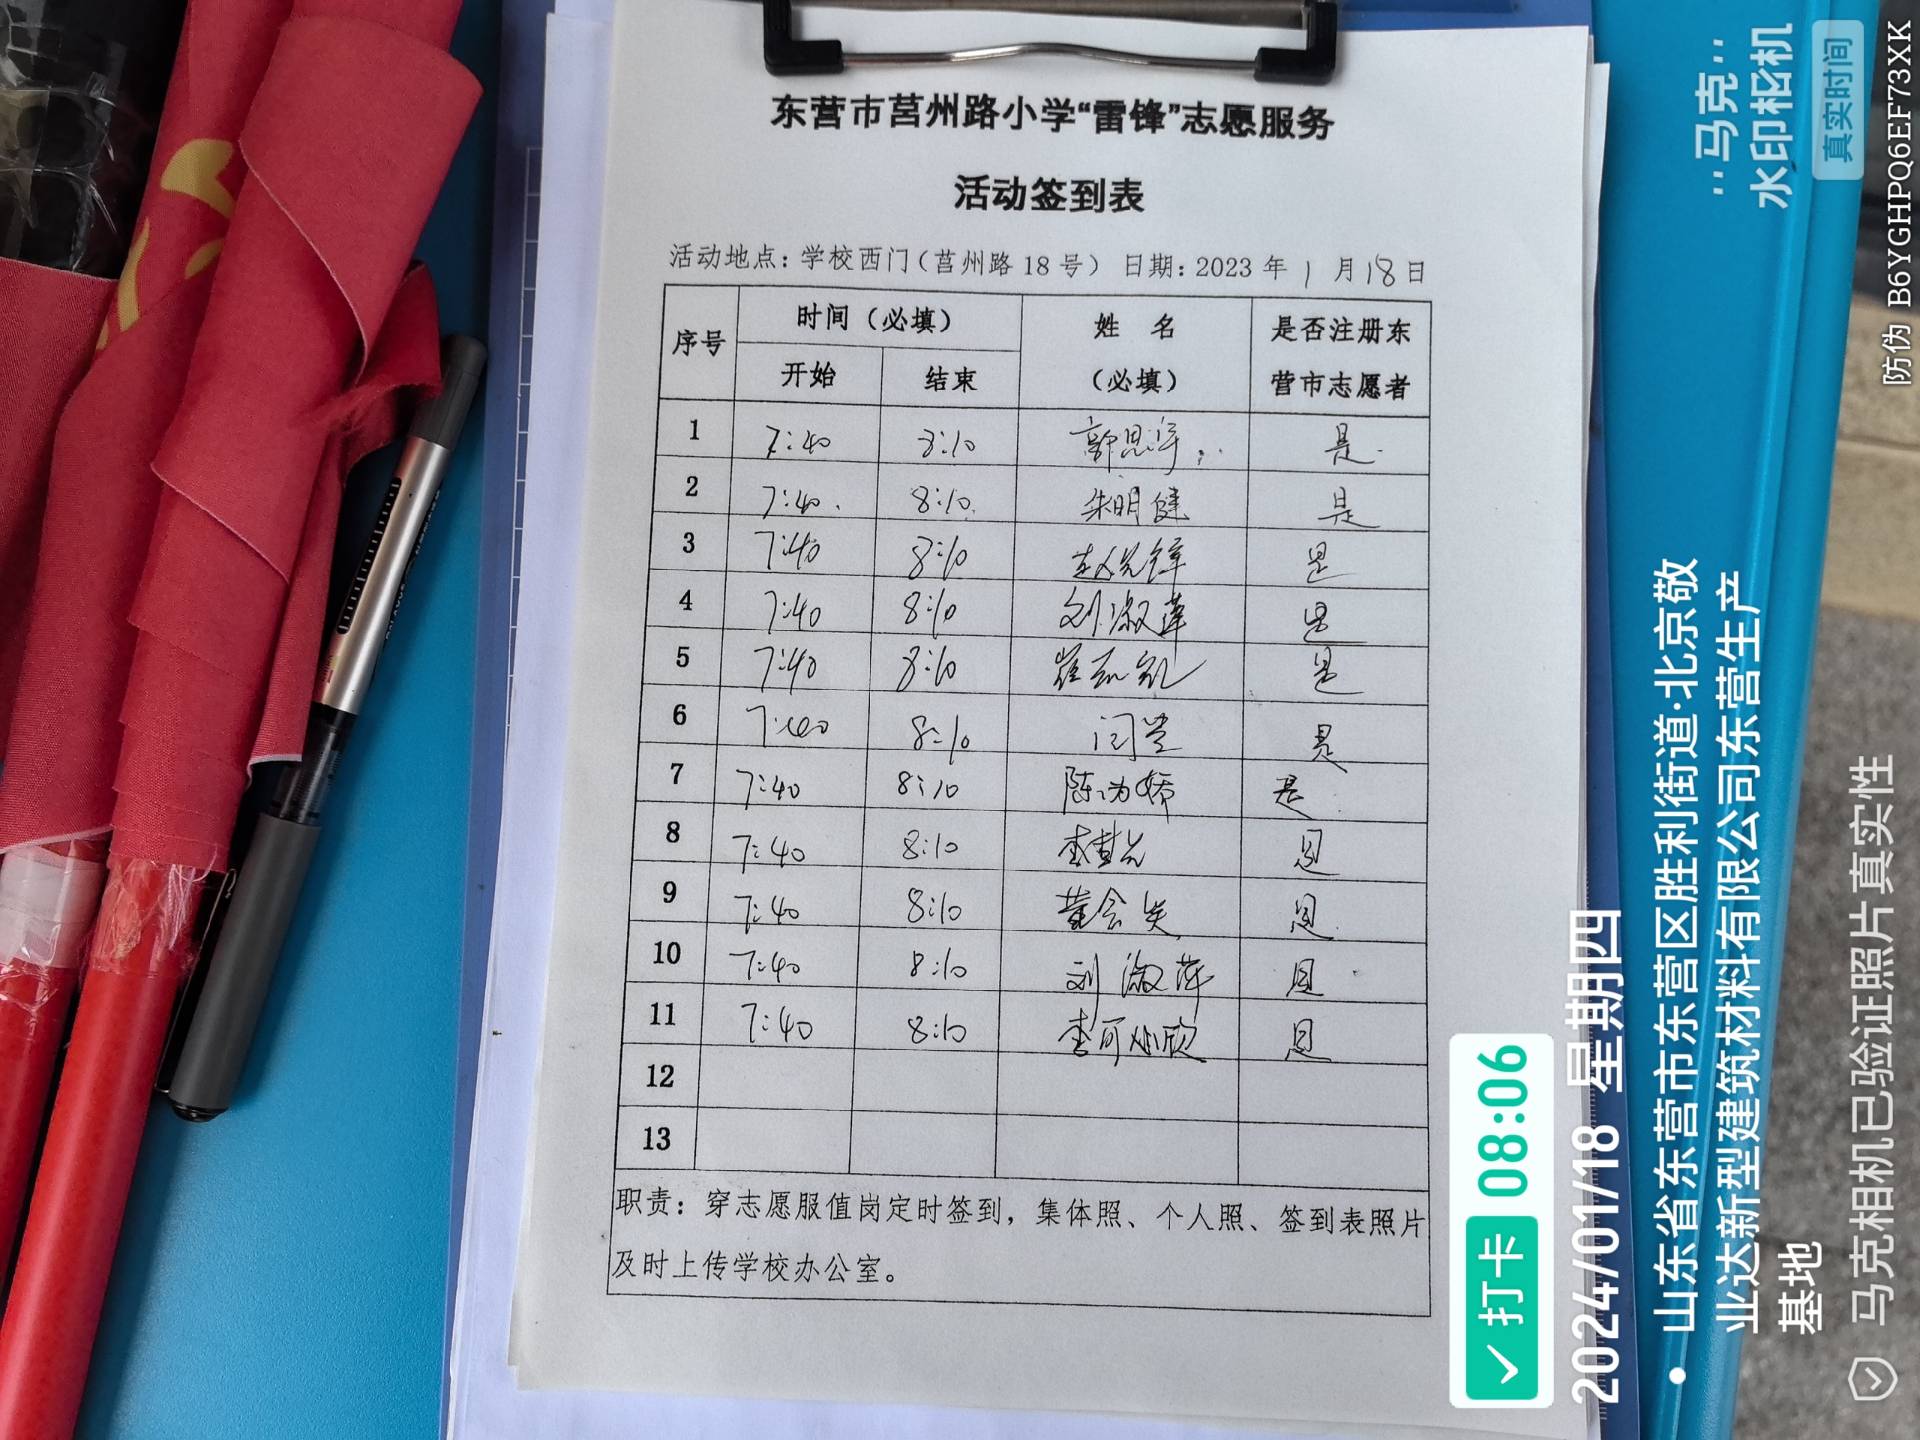 东营市莒州路小学“雷锋”志愿服务
活动签到表
活动地点：学校西门（莒州路18号） 日期：2023年1月18日
序号 时间（必填） 姓 名 是否注册东
开始 结束 （必填） 营市志愿者
1 7:40 8:10 是
2 7:40 8:10 朱明健 是
3 7:40 8:10 是
4 7:40 8:10 刘淑萍 是
5 7:40 8:10 是
6 7:40 8:10 是
7 7:40 8:10 是
8 7:40 8:10 是
9 7:40 8:10 是
10 7:40 8:10 刘淑萍 是
11 7:40 8:10 是
12
13
职责：穿志愿服值岗定时签到，集体照、个人照、签到表照片
及时上传学校办公室。
打卡 08:06
2024/01/18 星期四
山东省东营市东营区胜利街道·北京敬
业达新型建筑材料有限公司东营生产
基地
马克相机已验证照片真实性
"马克"
水印相机
真实时间
防伪 B6YGHPQ6EF73XK